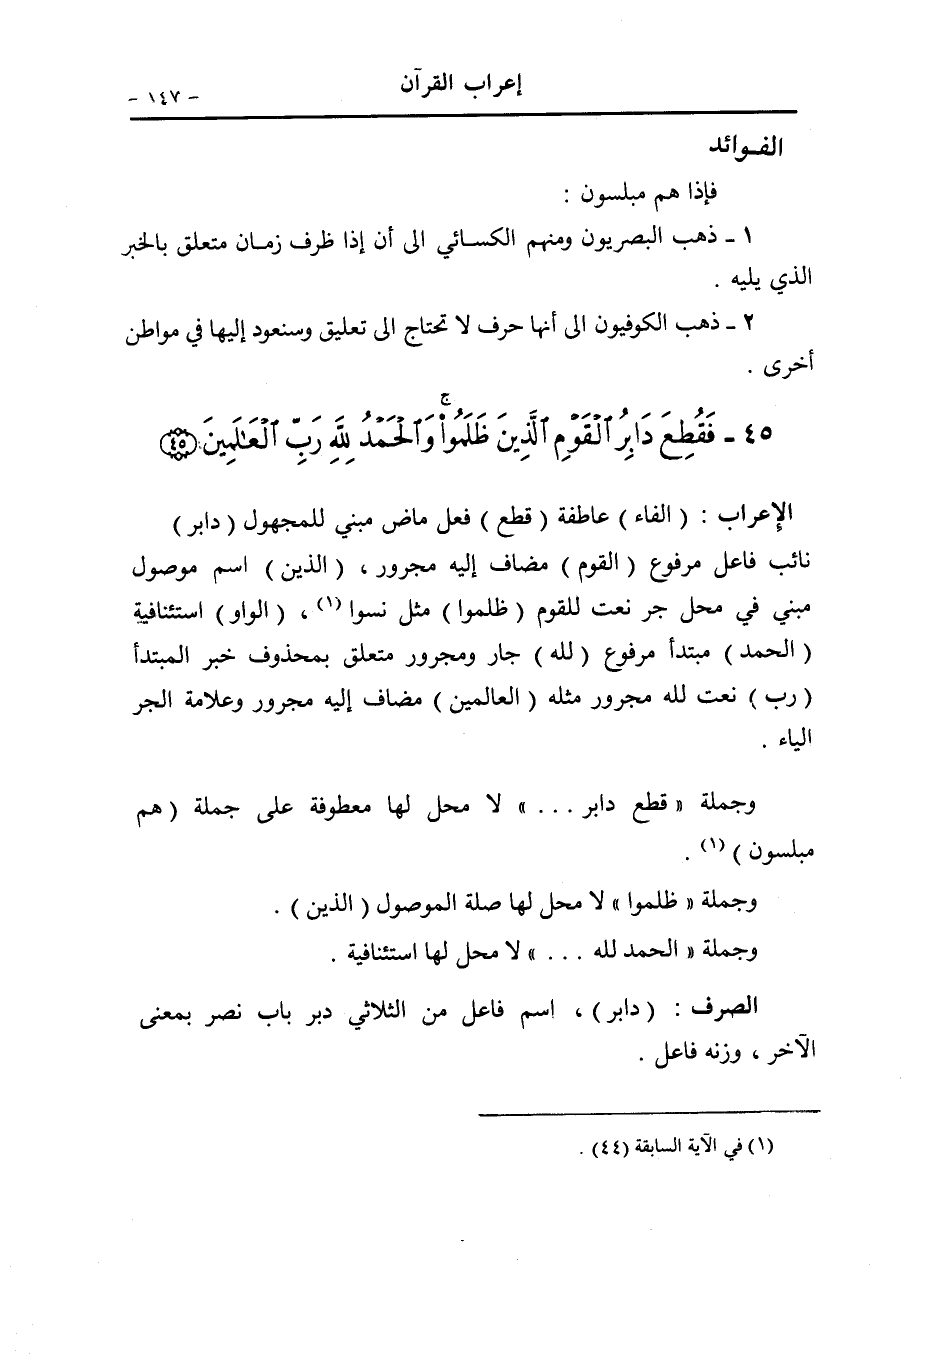 إعراب القرآن
- ١٤٧ -
الفـوائد
فإذا هم مبلسون :
١ ـ ذهب البصريون ومنهم الكسائي الى أن إذا ظرف زمـان متعلق بالخبر
الذي يليه .
٢ ـ ذهب الكوفيون الى أنها حرف لا تحتاج الى تعليق وسنعود إليها في مواطن
أخرى .
٤٥ - فَقُطِعَ دَابِرُ ٱلْقَوْمِ ٱلَّذِينَ ظَلَمُوا۟ ۚ وَٱلْحَمْدُ لِلَّهِ رَبِّ ٱلْعَـٰلَمِينَ ﴿٤٥﴾
الإعراب : ( الفاء ) عاطفة ( قطع ) فعل ماض مبني للمجهول ( دابر )
نائب فاعل مرفوع ( القوم ) مضاف إليه مجرور ، ( الذين ) اسم موصول
مبني في محل جر نعت للقوم ( ظلموا ) مثل نسوا (١) ، ( الواو ) استئنافية
( الحمد ) مبتدأ مرفوع ( لله ) جار ومجرور متعلق بمحذوف خبر المبتدأ
( رب ) نعت لله مجرور مثله ( العالمين ) مضاف إليه مجرور وعلامة الجر
الياء .
وجملة « قطع دابر . . . » لا محل لها معطوفة على جملة ( هم
مبلسون ) (١) .
وجملة « ظلموا » لا محل لها صلة الموصول ( الذين ) .
وجملة « الحمد لله . . . » لا محل لها استئنافية .
الصرف : ( دابر ) ، اسم فاعل من الثلاثي دبر باب نصر بمعنى
الآخر ، وزنه فاعل .
(١) في الآية السابقة (٤٤) .